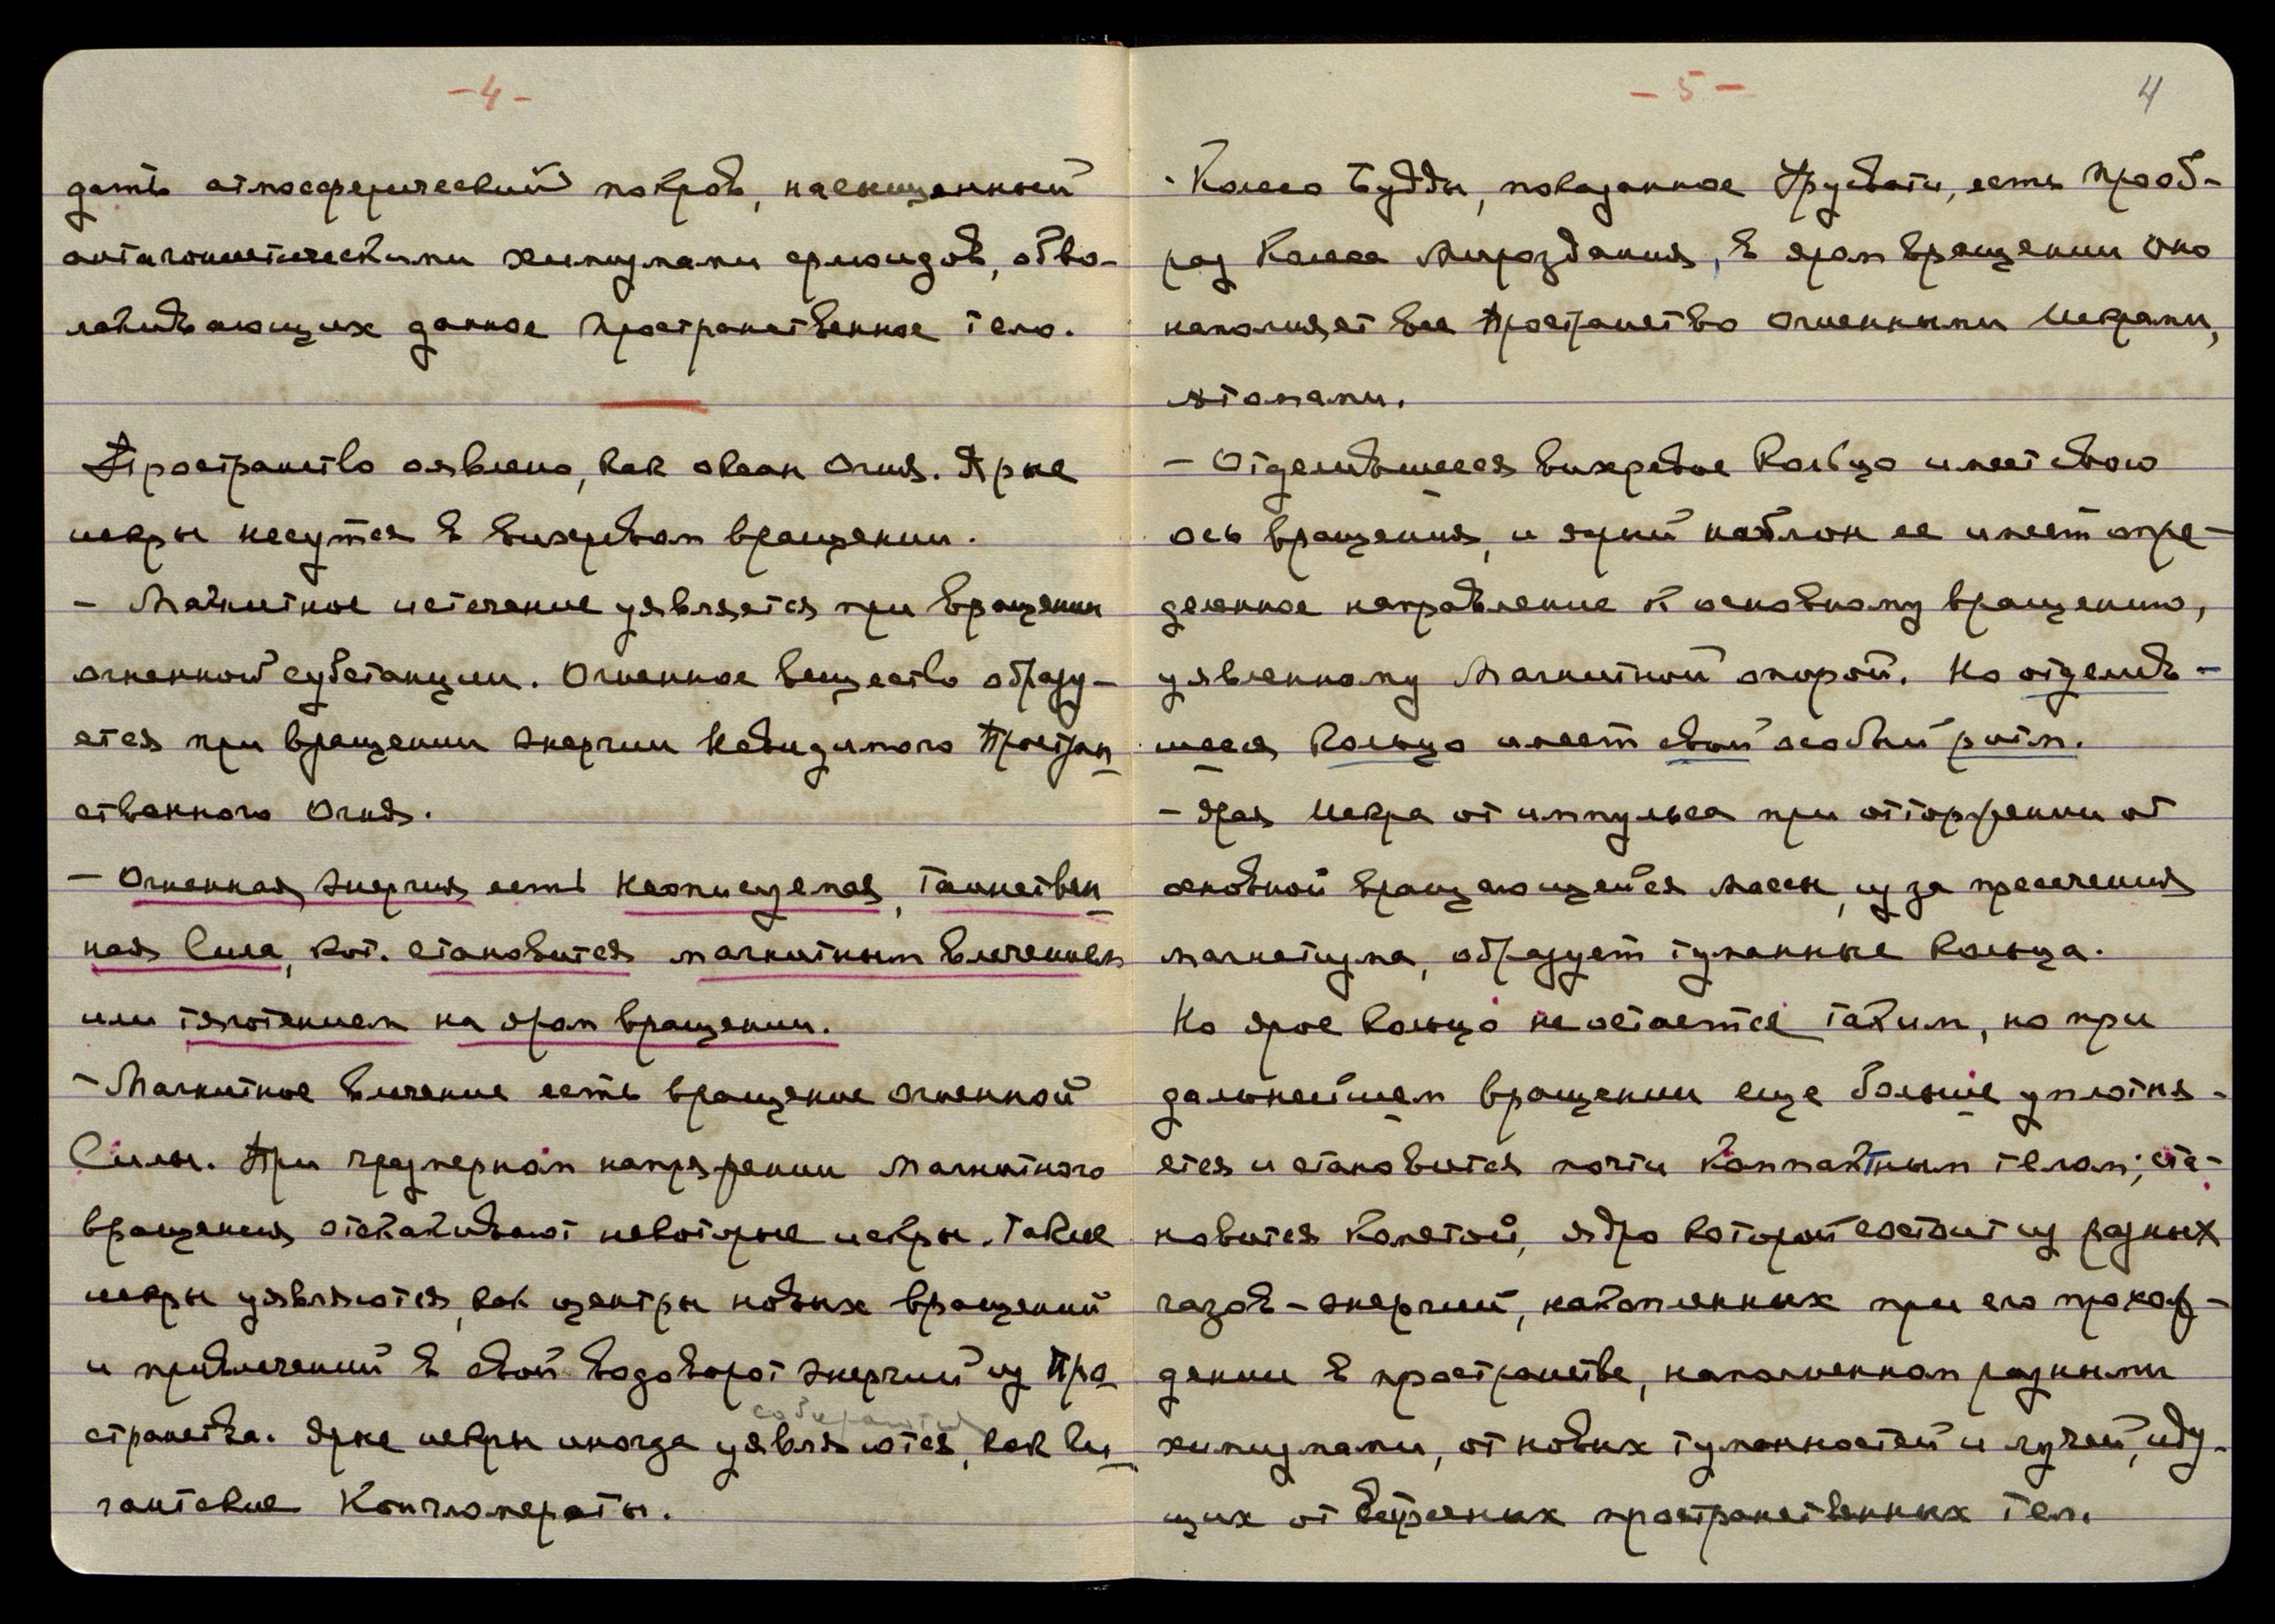 -4-
дать атмосферический покров, насыщенный
антагонистическими химизмами флюидов, обво-
лакивающих данное пространственное тело.
Пространство оявлено, как океан Огня. Ярые
искры несутся в вихревом вращении.
- Магнитное истечение уявляется при вращении
огненной субстанции. Огненное вещество образу-
ется при вращении энергии Невидимого Простран
ственного Огня.
- Огненная энергия есть неописуемая, таинствен
ная Сила, кот. становится магнитным влечением
или тяготением на яром вращении.
- Магнитное влечение есть вращение огненной
Силы. При чрезмерном напряжении магнитного
вращения отскакивают некоторые искры. Такие
искры уявляются, как центры новых вращений
и привлечений в свой водоворот энергий из Про
странства. Ярые искры иногда уявляются, как ги
собираются
гантские Конгломераты.
- 5 -
4
- Колесо Будды, показанное Урусвати, есть прооб-
раз Колеса Мироздания, в яром вращении оно
наполняет все Пространство огненными Искрами,
атомами.
- Отделившееся вихревое Кольцо имеет свою
ось вращения, и ярый наклон ее имеет опре-
деленное направление к основному вращению,
уявленному Магнитной опорой. Но отделив-
шееся Кольцо имеет свой особый ритм.
- Ярая Искра от импульса при отторжении от
основной вращающейся массы, из за пресечения
магнетизма, образует туманные Кольца.
Но ярое Кольцо не остается таким, но при
дальнейшем вращении еще больше уплотня-
ется и становится почти компактным телом; ста-
новится Кометой, ядро которой состоит из разных
газов-энергий, накопленных при его прохож-
дении в пространстве, наполненном разными
химизмами, от новых туманностей и лучей, иду-
щих от встречных пространственных тел.